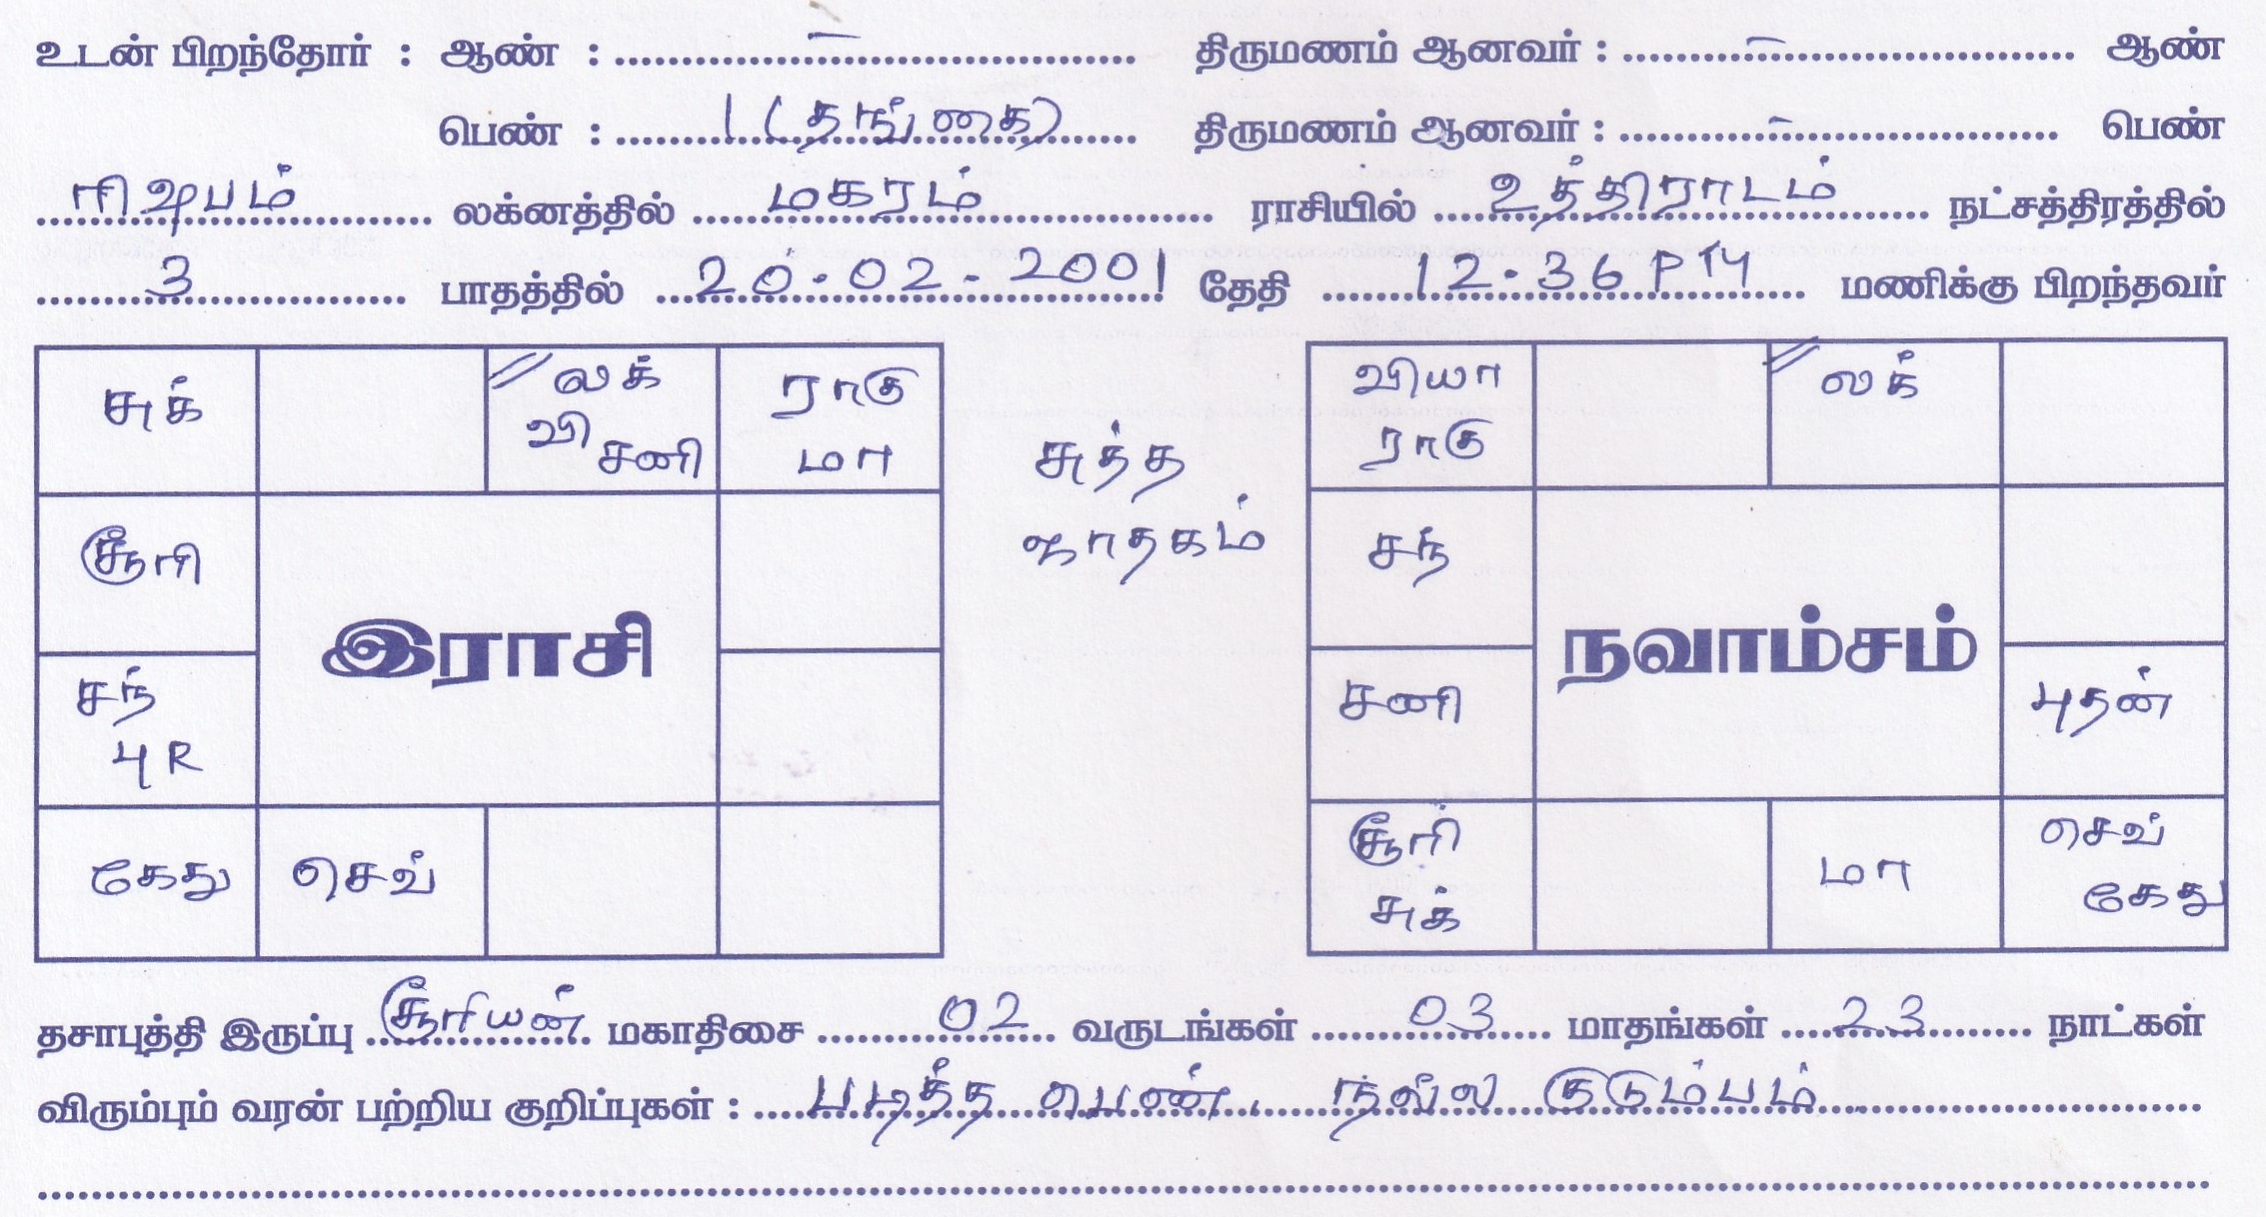 உடன் பிறந்தோர் : ஆண் : – திருமணம் ஆனவர் : – ஆண்
பெண் : 1 (தங்கை) திருமணம் ஆனவர் : – பெண்
ரிஷபம் லக்னத்தில் மகரம் ராசியில் உத்திராடம் நட்சத்திரத்தில்
3 பாதத்தில் 20.02.2001 தேதி 12.36 PM மணிக்கு பிறந்தவர்
சுக்
லக்
வி சனி
ராகு
மா
சூரி
சந்
பு R
கேது
செவ்
இராசி
சுத்த
ஜாதகம்
வியா
ராகு
லக்
சந்
சனி
புதன்
சூரி
சுக்
மா
செவ்
கேது
நவாம்சம்
தசாபுத்தி இருப்பு சூரியன் மகாதிசை 02 வருடங்கள் 03 மாதங்கள் 23 நாட்கள்
விரும்பும் வரன் பற்றிய குறிப்புகள் : படித்த பெண். நல்ல குடும்பம்